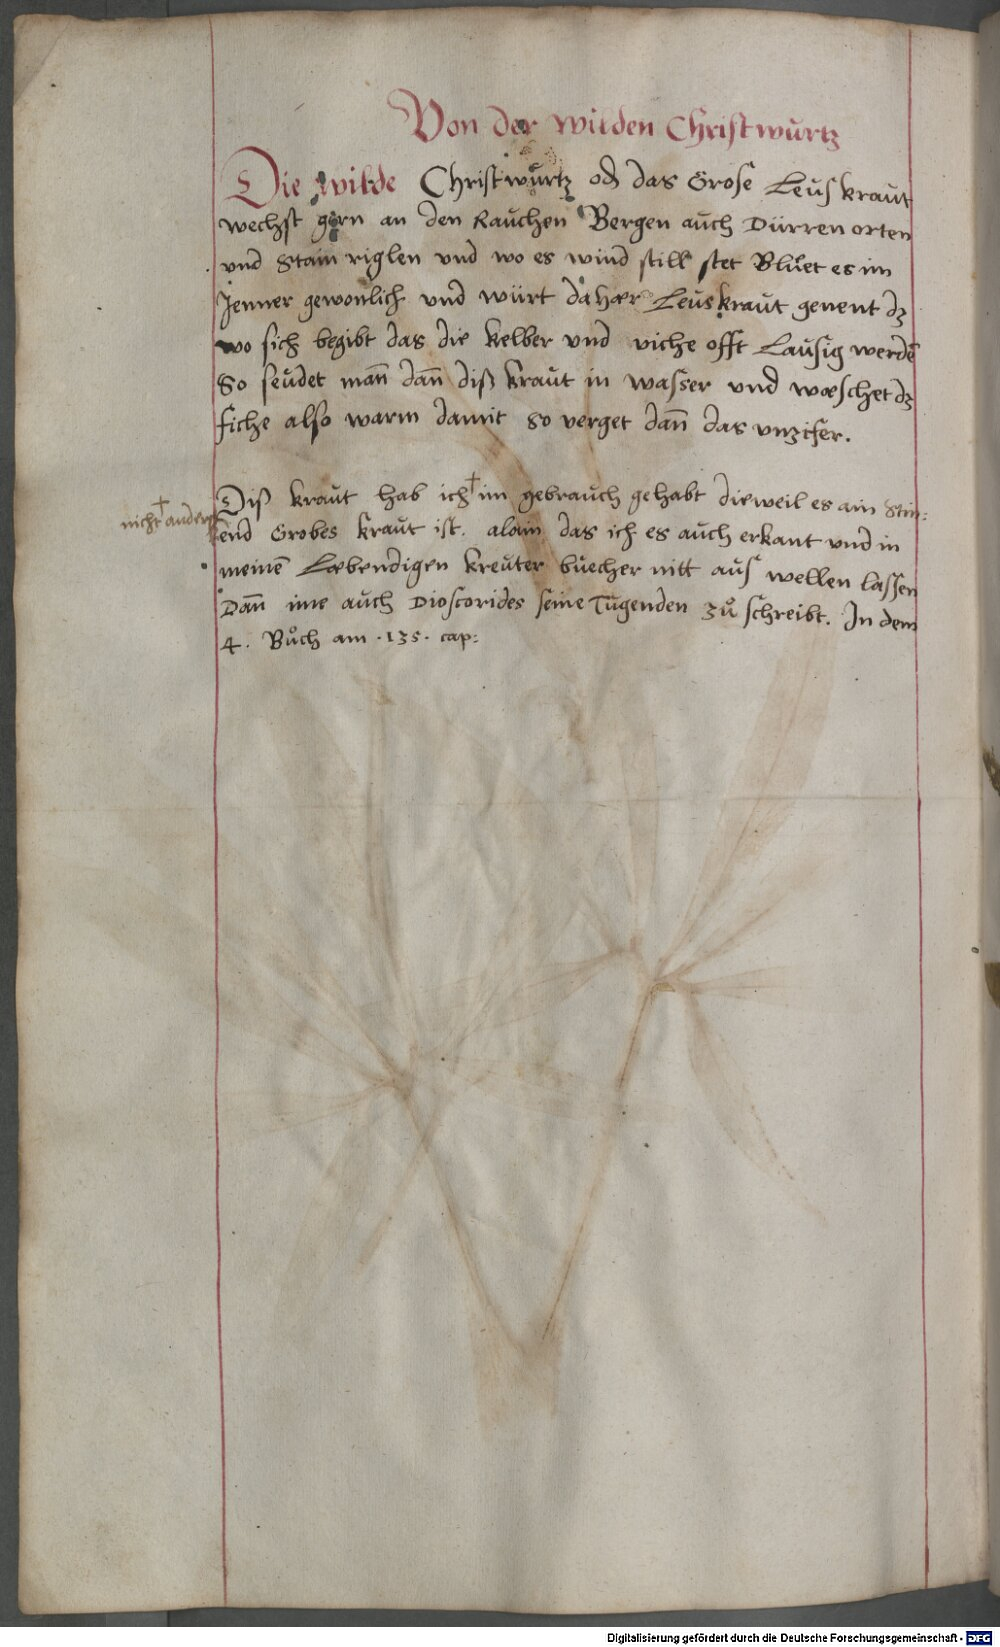 Von der wilden Christwurtz
Die wilde Christwurtz od das Grose Leus kraut
wechst gern an den Rauchen Bergen auch Dürren orten
und Stain riglen und wo es wind still stet Bluet es im
Jenner gewonlich und würt dahær Leuskraut genent dz
wo sich begibt das die kelber und viche offt Lausig werdē
So seudet man̄ dan̄ diß kraut in wasser und wæschet dz
fiche also warm damit so verget dan̄ das unzifer.
Diß kraut hab ich † im gebrauch gehabt dieweil es ain stin:
† nicht anders
end Grobes kraut ist. alain das ich es auch erkant und in
meinē Læbendigen kreuter buecher nitt aus wellen lassen
Dan̄ ime auch Dioscorides seine Tugenden zů schreibt. In dem
4. Bůch am .135. cap:
Digitalisierung gefördert durch die Deutsche Forschungsgemeinschaft - DFG